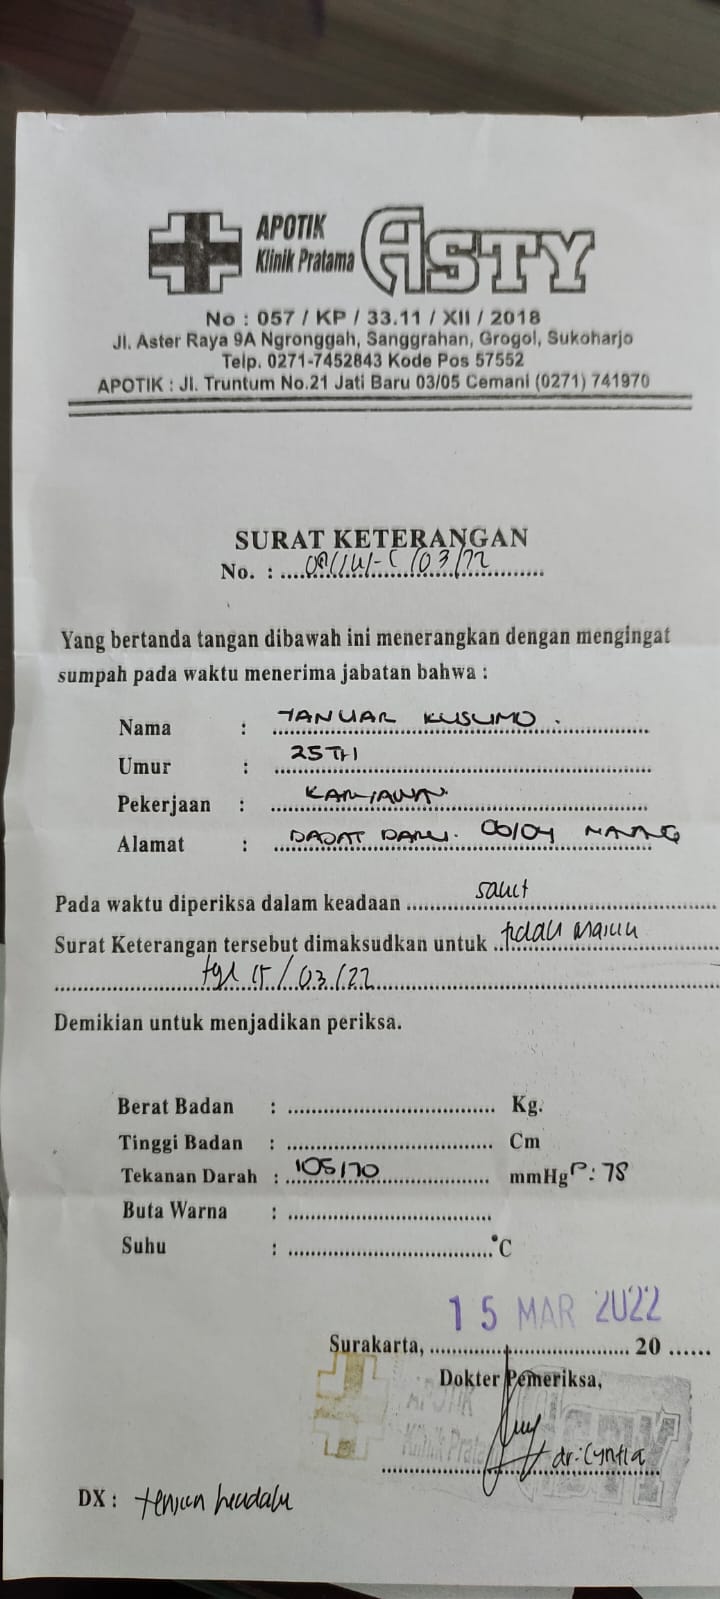 APOTIK
Klinik Pratama ASTY
No : 057 / KP / 33.11 / XII / 2018
Jl. Aster Raya 9A Ngronggah, Sanggrahan, Grogol, Sukoharjo
Telp. 0271-7452843 Kode Pos 57552
APOTIK : Jl. Truntum No.21 Jati Baru 03/05 Cemani (0271) 741970
SURAT KETERANGAN
No. : /03/22
Yang bertanda tangan dibawah ini menerangkan dengan mengingat
sumpah pada waktu menerima jabatan bahwa :
Nama : YANUAR KUSUMO.
Umur : 25 TH
Pekerjaan : KARYAWAN
Alamat : 06/04
Pada waktu diperiksa dalam keadaan sakit
Surat Keterangan tersebut dimaksudkan untuk tidak masuk
tgl 15/03/22
Demikian untuk menjadikan periksa.
Berat Badan : Kg.
Tinggi Badan : Cm
Tekanan Darah : 105/70 mmHg P: 78
Buta Warna :
Suhu : °C
15 MAR 2022
Surakarta, 20
Dokter Pemeriksa,
APOTIK
Klinik Pratama ASTY
dr. Cyntia
DX : tension headake